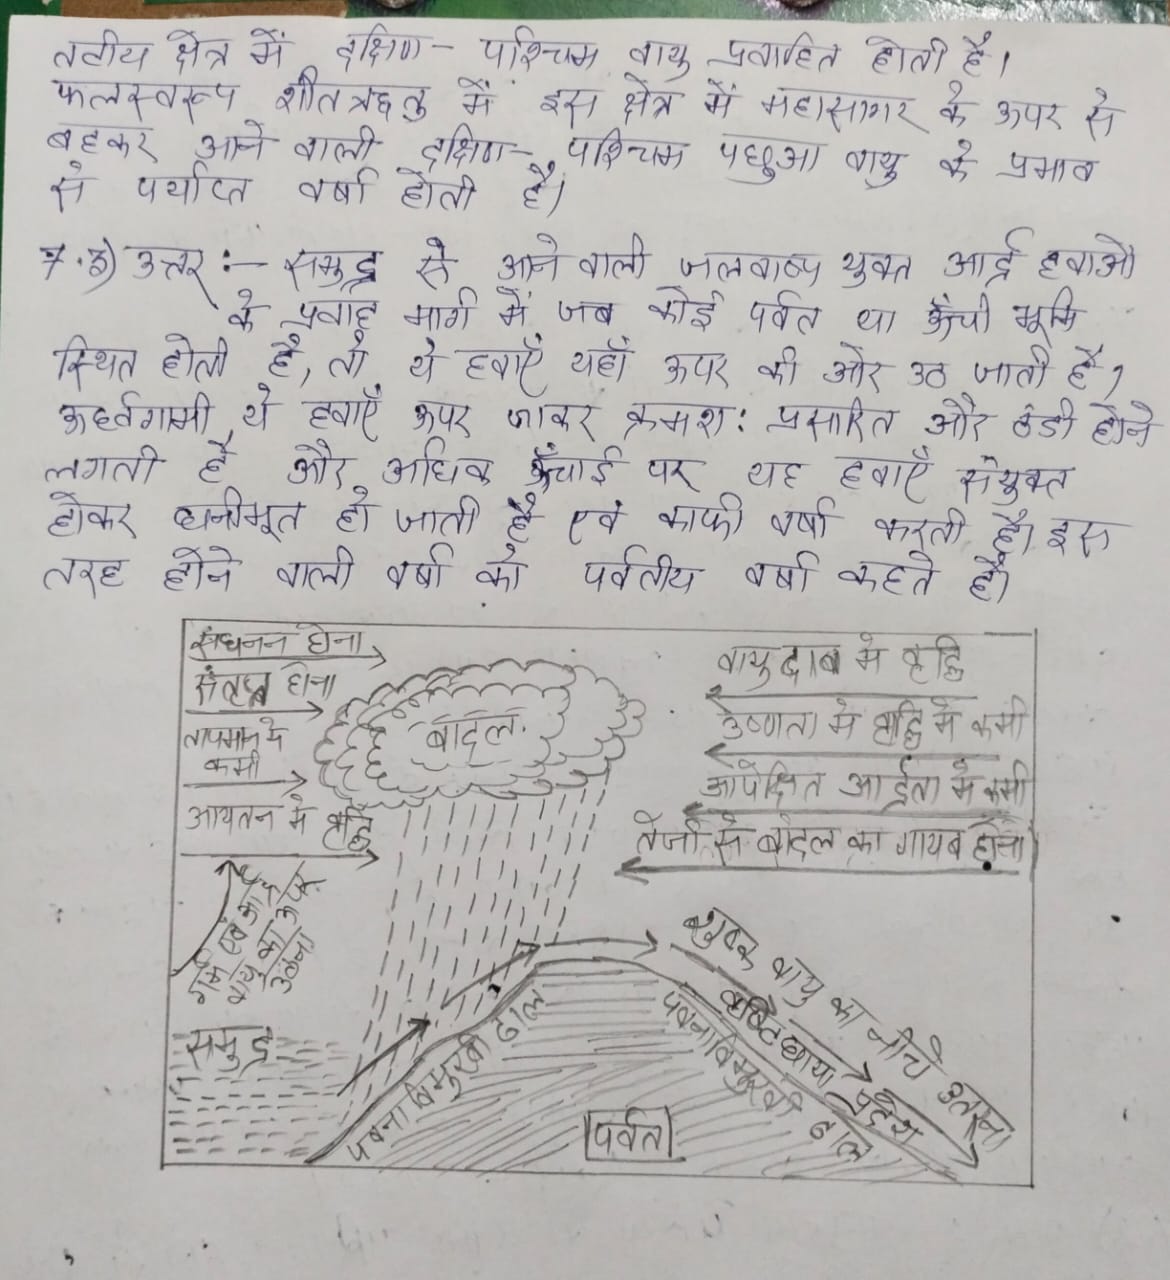 तटीय क्षेत्र में दक्षिण- पश्चिम वायु प्रवाहित होती है।
फलस्वरूप शीतऋतु में इस क्षेत्र में महासागर के ऊपर से
बहकर आने वाली दक्षिण- पश्चिम पछुआ वायु के प्रभाव
से पर्याप्त वर्षा होती है।
7.3) उत्तर :- समुद्र से आने वाली जलवाष्प युक्त आर्द्र हवाओं
के प्रवाह मार्ग में जब कोई पर्वत या ऊँची भूमि
स्थित होती है, तो ये हवाएँ यहाँ ऊपर की ओर उठ जाती है,
ऊर्ध्वगामी ये हवाएँ ऊपर जाकर क्रमश: प्रसारित और ठंडी होने
लगती है और अधिक ऊँचाई पर यह हवाएँ संयुक्त
होकर घनीभूत हो जाती है एवं काफी वर्षा करती है। इस
तरह होने वाली वर्षा को पर्वतीय वर्षा कहते है।
संघनन होना
संतृप्त होना
तापमान मे
कमी
आयतन मे वृद्धि
बादल
वायुदाब मे वृद्धि
उष्णता मे वृद्धि मे कमी
आपेक्षित आर्द्रता मे कमी
तेजी से बादल का गायब होना
गर्म एवं आर्द्र
वायु का ऊपर
उठना
समुद्र
पवनाविमुखी ढाल
पर्वत
पवनाविमुखी ढाल
वृष्टि छाया प्रदेश
शुष्क वायु का नीचे उतरना